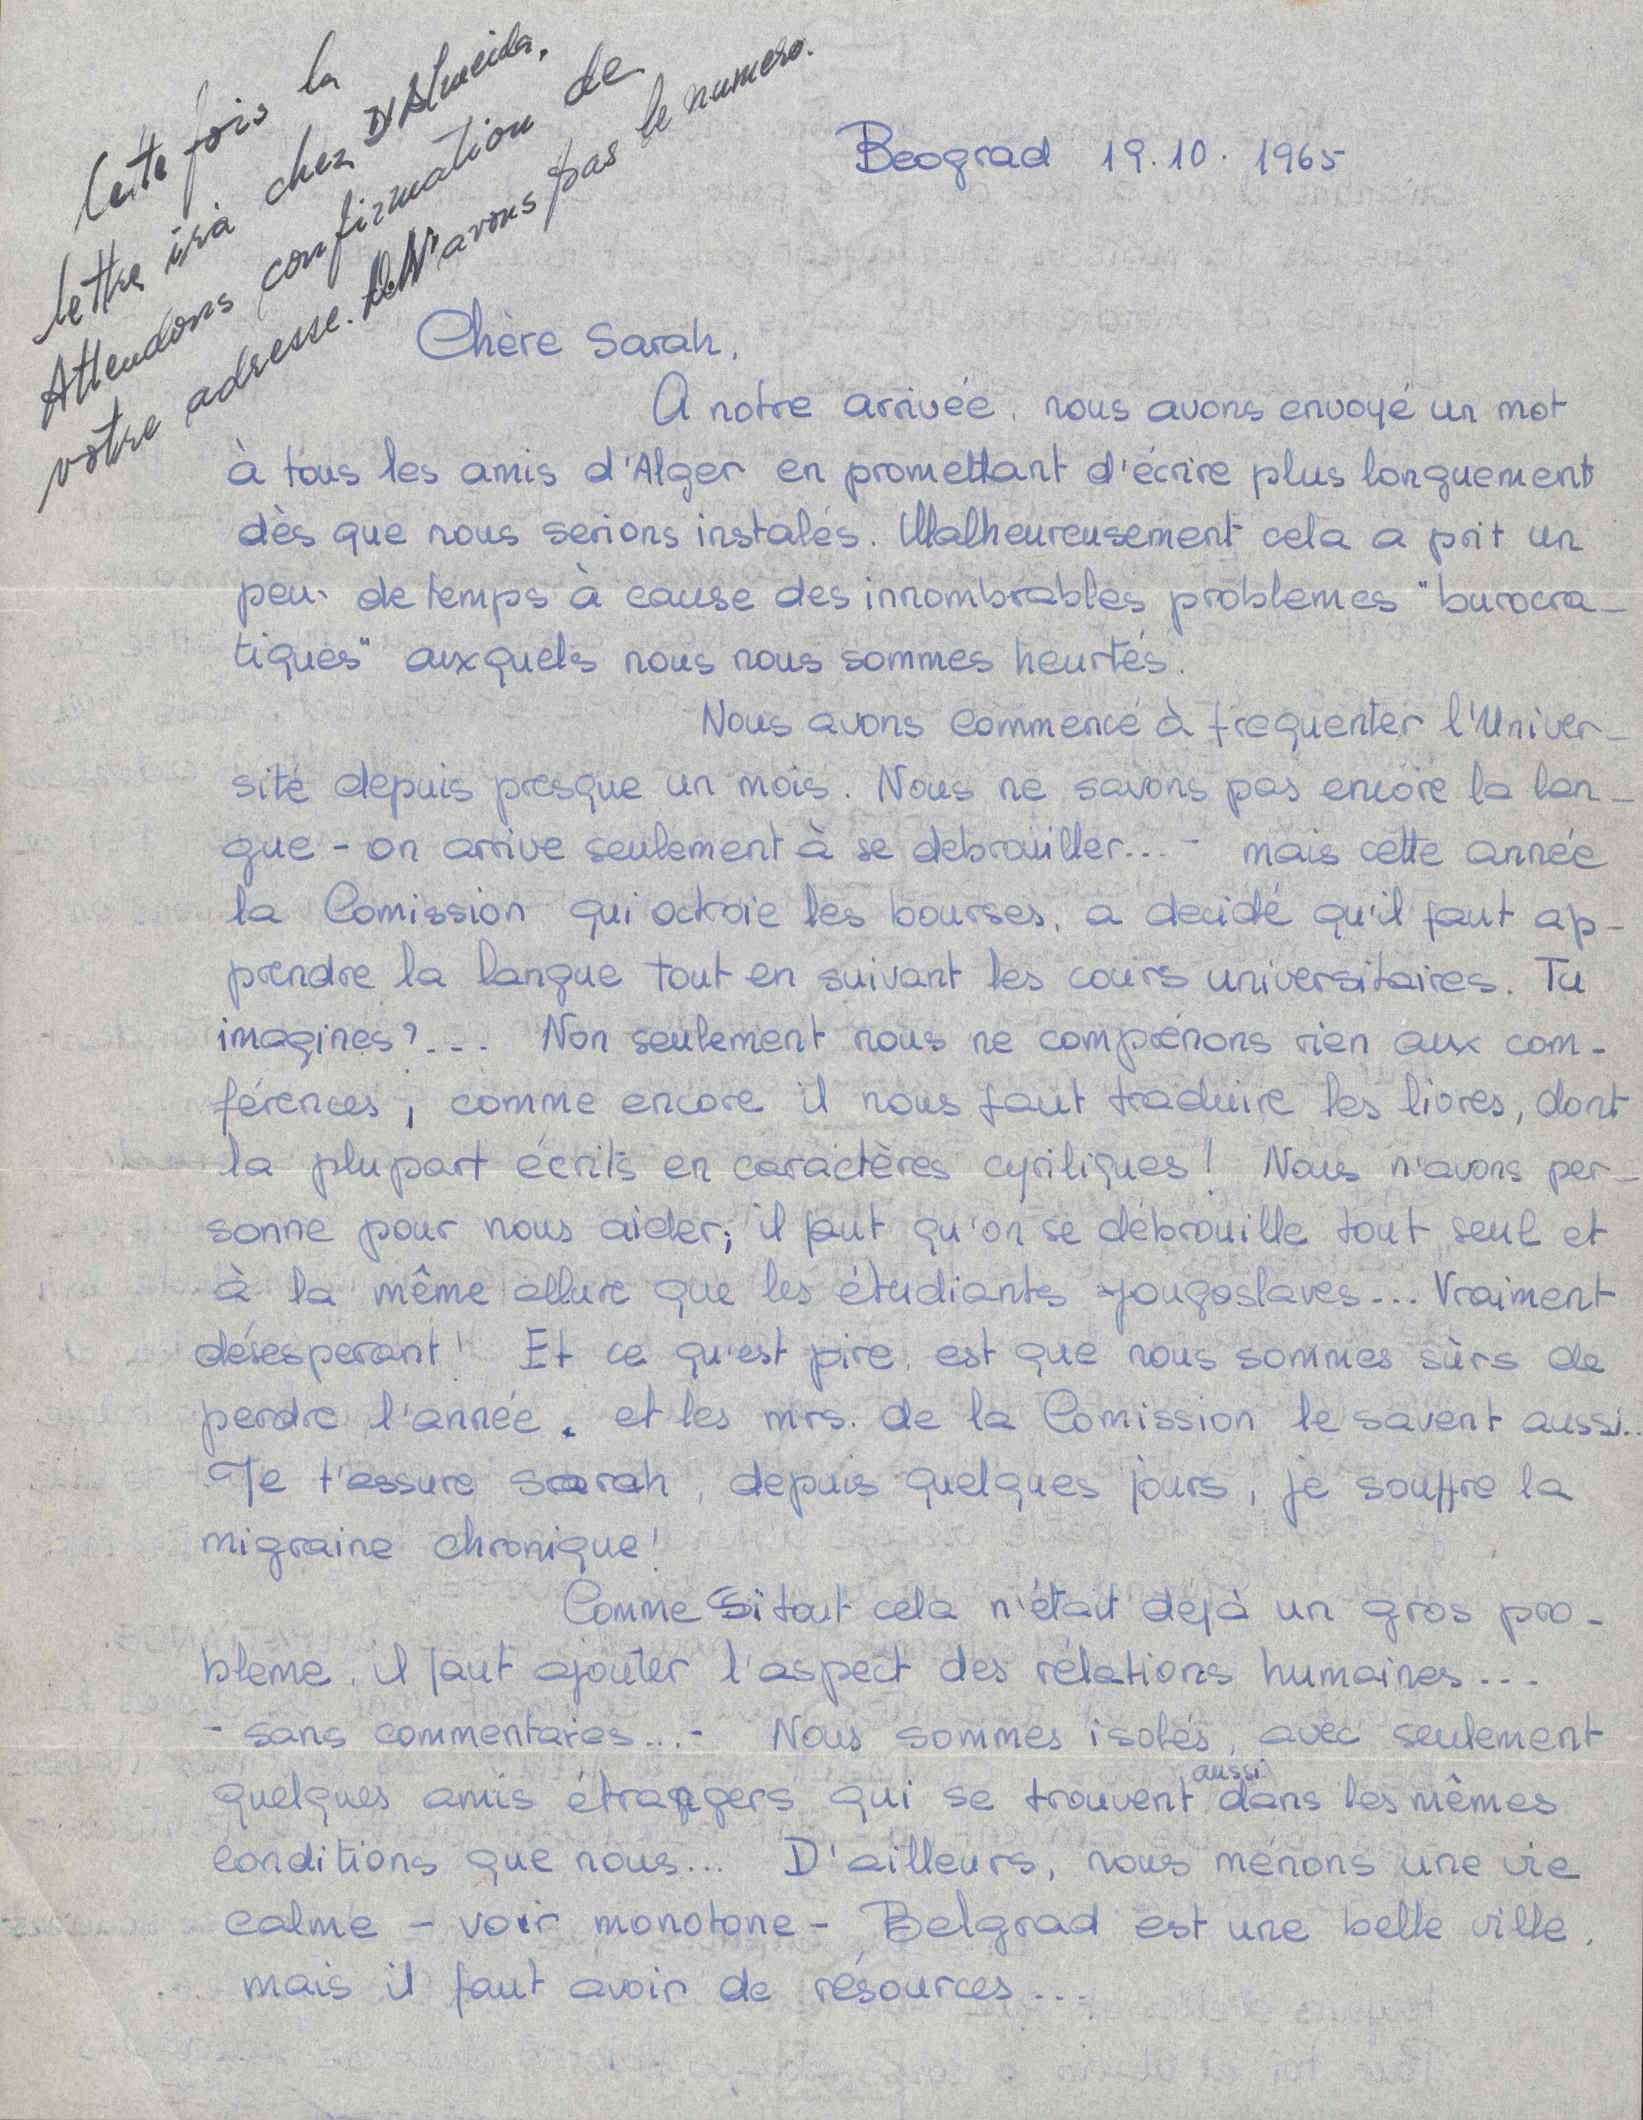 Cette fois la
lettre irà chez D'Almeida.
Attendons confirmation de
votre adresse. N'avons pas le numero.
Beograd 19.10.1965
Chère Sarah,
A notre arrivée, nous avons envoyé un mot
à tous les amis d'Alger en promettant d'écrire plus longuement
dès que nous serions instalés. Malheureusement cela a prit un
peu de temps à cause des innombrables problemes "burocra-
tiques" auxquels nous nous sommes heurtés.
Nous avons commencé à frequenter l'Univer-
sité depuis presque un mois. Nous ne savons pas encore la lan-
gue - on arrive seulement à se debrouiller... - mais cette année
la Comission qui octroie les bourses, a decidé qu'il faut ap-
prendre la langue tout en suivant les cours universitaires. Tu
imagines?... Non seulement nous ne comprénons rien aux com-
férences, comme encore il nous faut traduire les livres, dont
la plupart écrits en caractères cyriliques! Nous n'avons per-
sonne pour nous aider; il faut qu'on se débrouille tout seul et
à la même allure que les étudiants yougoslaves... Vraiment
désesperant! Et ce qu'est pire, est que nous sommes sûrs de
perdre l'année, et les mrs. de la Comission le savent aussi..
Je t'assure Sarah, depuis quelques jours, je souffre la
migraine chronique!
Comme si tout cela n'était déjà un gros pro-
bleme, il faut ajouter l'aspect des rélations humaines...
- sans commentaires...- Nous sommes isolés, avec seulement
quelques amis étrangers qui se trouvent aussi dans les mêmes
conditions que nous... D'ailleurs, nous ménons une vie
calme - voir monotone - Belgrad est une belle ville,
mais il faut avoir de résources...